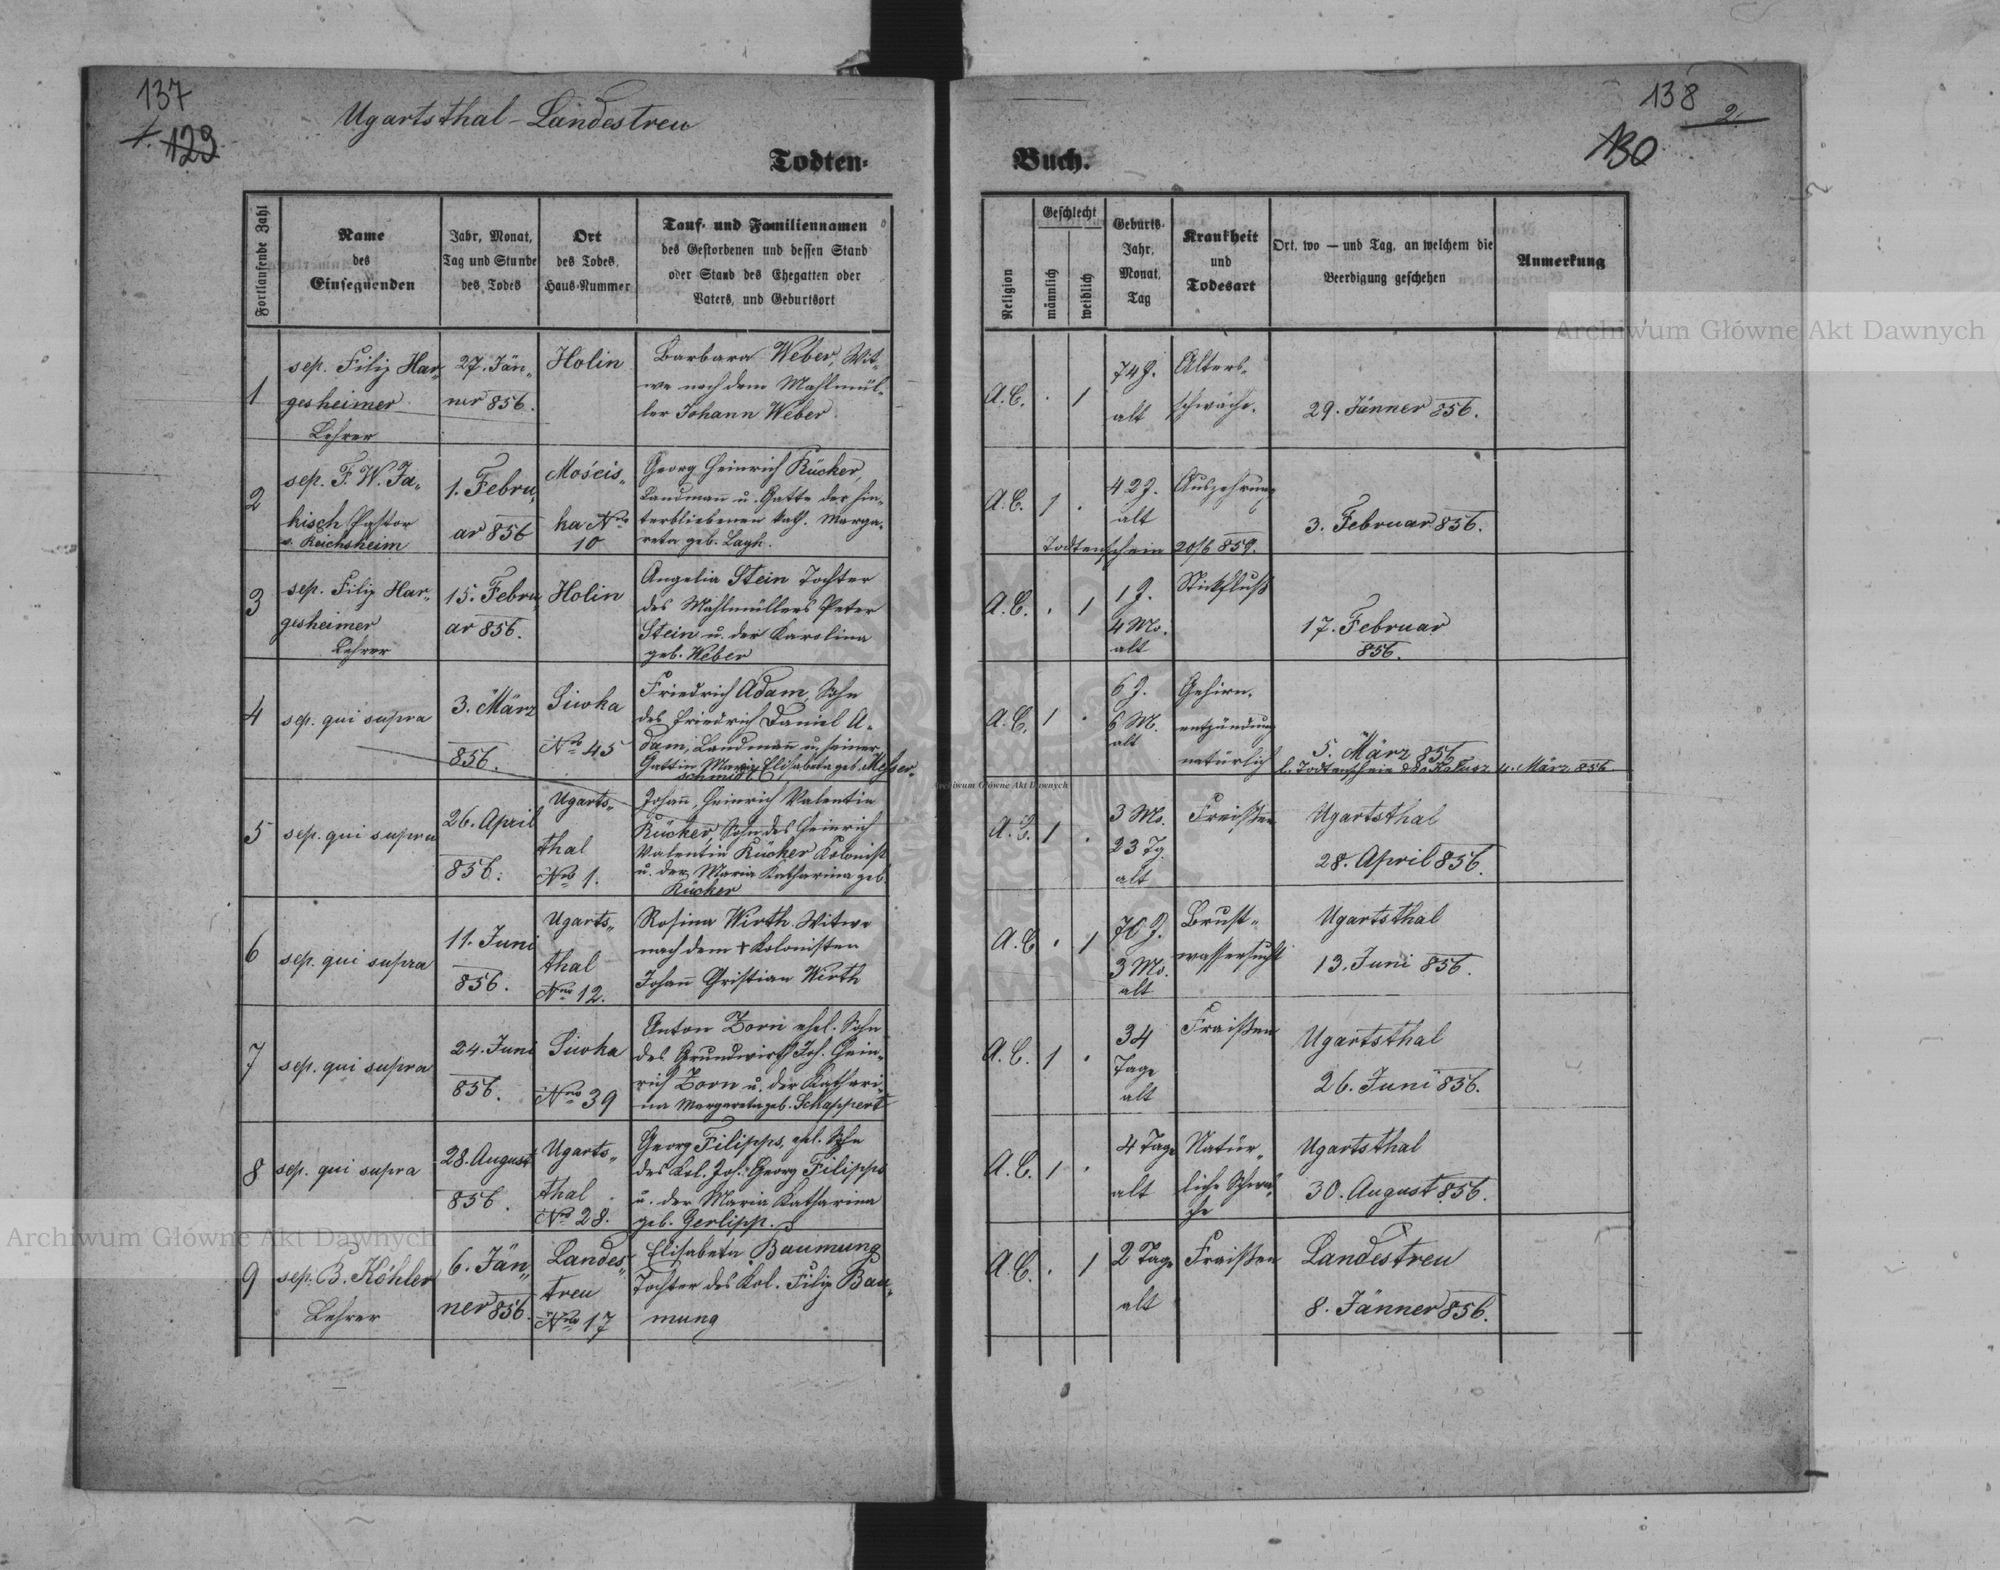 137
1. 129
Ugartsthal-Landestreu
Todten-
Fortlaufende Zahl
Name
des
Einsegnenden
Jahr, Monat,
Tag und Stunde
des Todes
Ort
des Todes,
Haus-Nummer
Tauf- und Familiennamen
des Gestorbenen und dessen Stand
oder Stand des Ehegatten oder
Vaters, und Geburtsort
1
sep. Filip Har-
gesheimer
Lehrer
27. Jän-
ner 856.
Holin
Barbara Weber, Wit-
we nach dem Mahlmül-
ler Johann Weber
2
sep. F. W. Ja-
kisch Pastor
v. Reichsheim
1. Febru-
ar 856
Mościs-
ka Nro
10
Georg Heinrich Rücker,
Landmann u. Gatte der hin-
terbliebenen Kath. Marga-
reta geb.
3
sep. Filip Har-
gesheimer
Lehrer
15. Febru-
ar 856.
Holin
Angelia Stein Tochter
des Mahlmüllers Peter
Stein u. der Karolina
geb. Weber
4
sep. qui supra
3. März
856.
Siwka
Nro 45
Friedrich Adam, Sohn
des Friedrich Daniel A-
dam, Landmann u. seiner
Gattin Maria Elisabeta geb. Messer-
schmidt
5
sep. qui supra
26. April
856.
Ugarts-
thal
Nro 1.
Johann Heinrich Valentin
Rücker Sohn des Heinrich
Valentin Rücker Kolonist
u. der Maria Katharina geb.
Rücker
6
sep. qui supra
11. Juni
856.
Ugarts-
thal
Nro 12.
Rosina Wirth Witwe
nach dem + Kolonisten
Johann Christian Wirth
7
sep. qui supra
24. Juni
856.
Siwka
Nro 39
Anton Zorn ehel. Sohn
des Grundwirth Joh. Hein-
rich Zorn u. der Kathari-
na Margareta geb. Schappert
8
sep. qui supra
28. August
856.
Ugarts-
thal
Nro 28.
Georg Filipps, ehl. Sohn
des Kol. Joh. Georg Filipps
u. der Maria Katharina
geb. Gerlipp.
9
sep. B. Köhler
Lehrer
6. Jän-
ner 856.
Landes-
treu
Nro 17
Elisabeta Baumung
Tochter des Kol. Filip Bau-
mung
138
2.
130
Buch.
Religion
Geschlecht
männlich
weiblich
Geburts-
Jahr,
Monat,
Tag
Krankheit
und
Todesart
Ort, wo — und Tag, an welchem die
Beerdigung geschehen
Anmerkung
A. C. . 1
74 J.
alt
Alters-
schwäche.
29. Jänner 856.
A. C. 1 .
42 J.
alt
Auszehrung
3. Februar 856.
Todtenschein 20/6 859.
A. C. . 1
1 J.
4 Mo.
alt
Stickfluß
17. Februar
856.
A. C. 1 .
6 J.
6 M.
alt
Gehirn-
entzündung
natürlich
5. März 856
Todtenschein Kalusz 4. März 856
A. C. 1 .
3 Mo.
23 Tg.
alt
Fraißen
Ugartsthal
28. April 856.
A. C. . 1
70 J.
3 Mo.
alt
Brust-
wassersucht
Ugartsthal
13. Juni 856.
A. C. 1 .
34
Tage
alt
Fraißen
Ugartsthal
26. Juni 856.
A. C. 1 .
4 Tage
alt
Natür-
liche Schwä-
che
Ugartsthal
30. August 856.
A. C. . 1
2 Tage
alt
Fraißen
Landestreu
8. Jänner 856.
Archiwum Główne Akt Dawnych
Archiwum Główne Akt Dawnych
Archiwum Główne Akt Dawnych